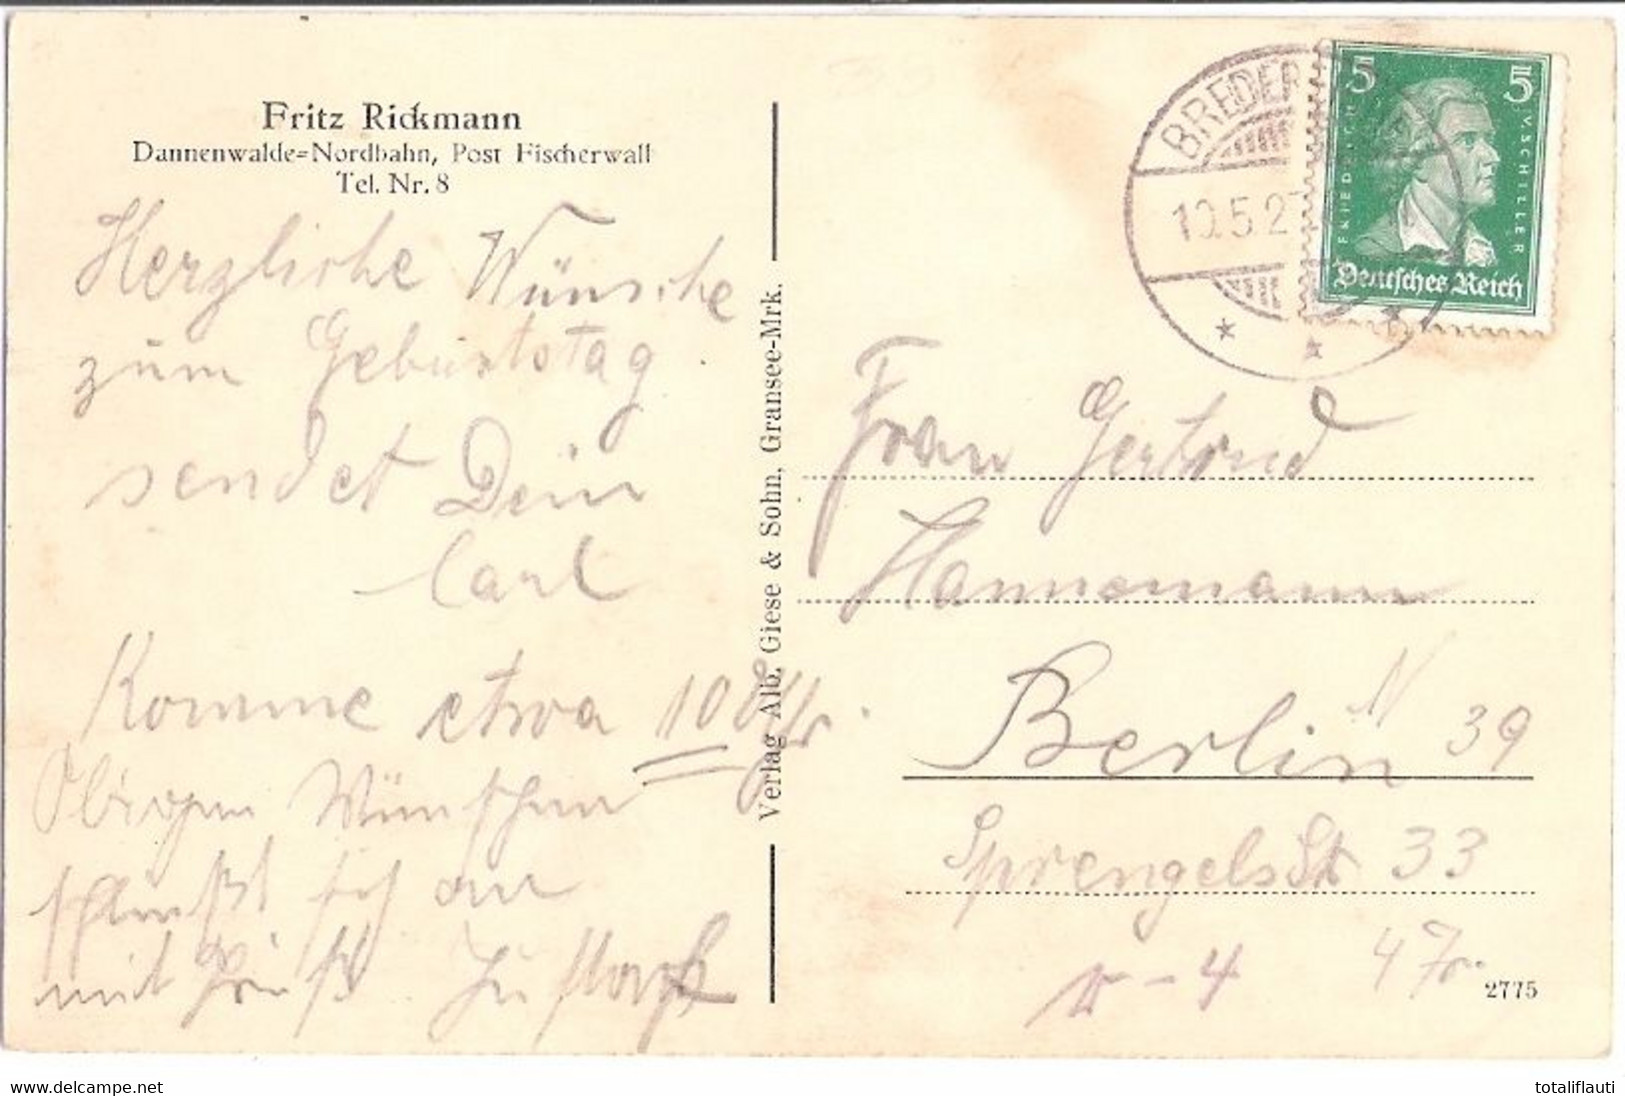 Fritz Rickmann
Dannenwalde=Nordbahn, Post Fischerwall
Tel. Nr. 8
Herzliche Wünsche
zum Geburtstag
sendet Dein
Carl
Komme etwa 10 Uhr.
Obigen Wünschen
schließt sich an
mit Gruß
Verlag Alb. Giese & Sohn, Gransee-Mrk.
BREDER
10.5.27
5 5
FRIEDRICH V. SCHILLER
Deutsches Reich
Frau Gertrud
Hannemann
Berlin N 39
Sprengelstr 33
v - 4
4 Tr.
2775
delcampe.net
totaliflauti